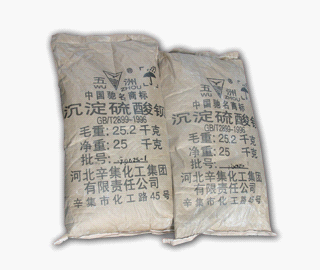 五洲
WU ZHOU
中国驰名商标
沉淀硫酸钡
GB/T2899-1996
毛重: 25.2 千克
净重: 25 千克
批号:
河北辛集化工集团
有限责任公司
辛集市化工路45号
五洲
WU ZHOU
中国驰名商标
沉淀硫酸钡
GB/T2899-1996
毛重: 25.2 千克
净重: 25 千克
批号:
河北辛集化工集团
有限责任公司
辛集市化工路45号